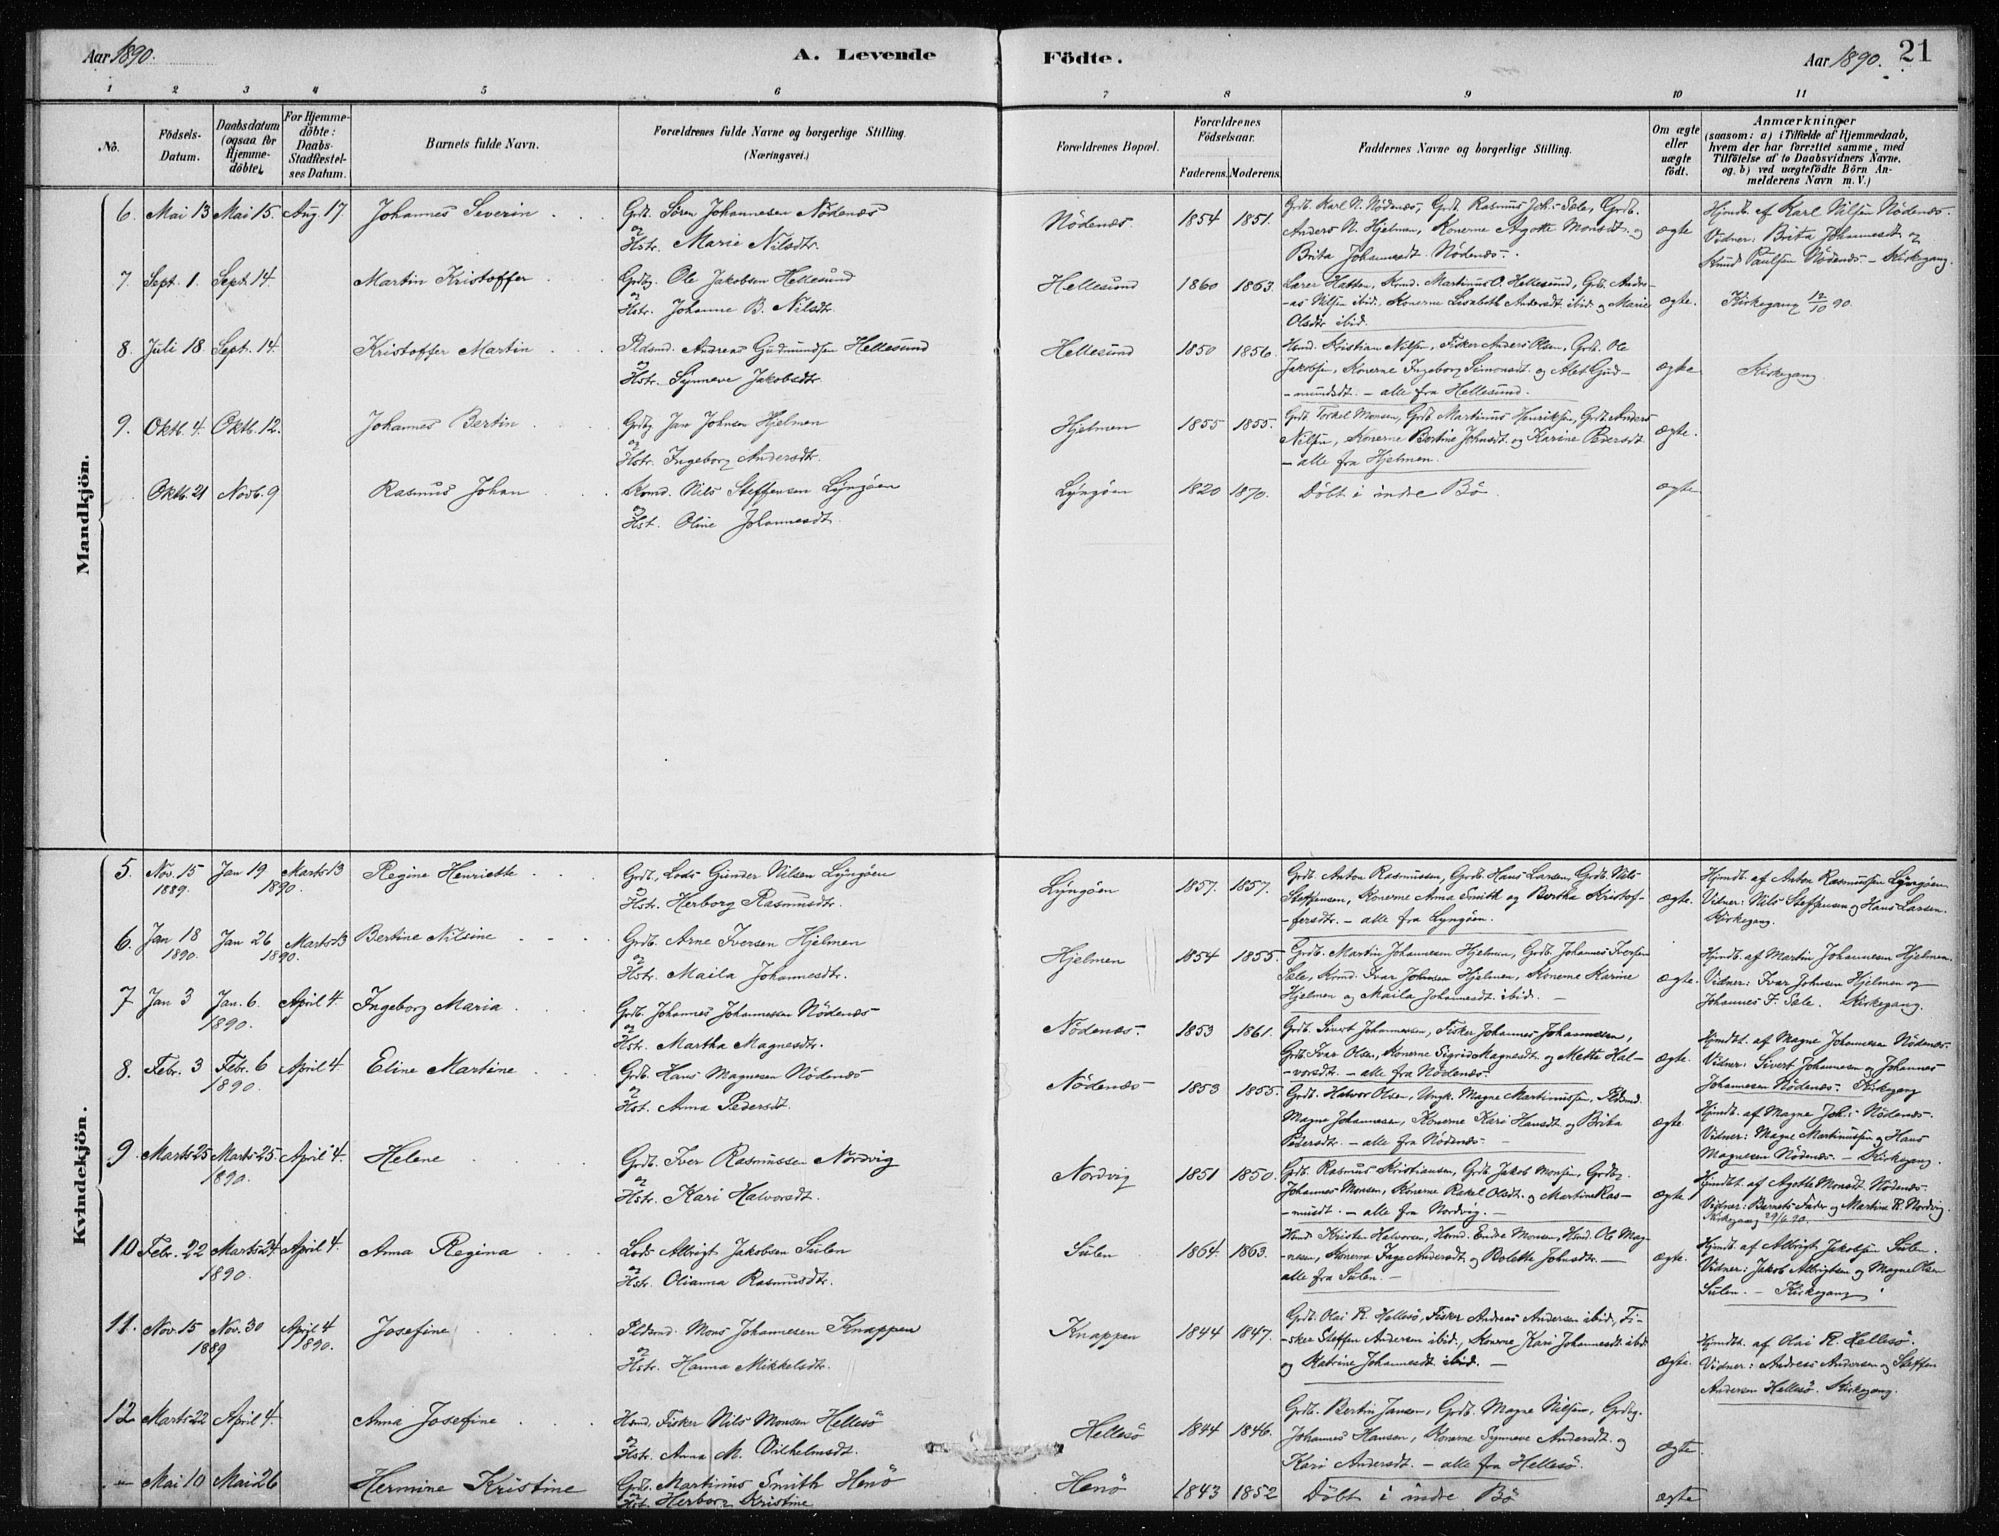 Aar 1890.
A. Levende Födte.
Aar 1890. 21
1 2 3 4 5 6 7 8 9 10 11
No.
Födsels-Datum.
Daabsdatum (ogsaa for Hjemme-döbte).
For Hjemme-döbte: Daabs-Stadfæstel-ses Datum.
Barnets fulde Navn.
Forældrenes fulde Navne og borgerlige Stilling. (Næringsvei.)
Forældrenes Bopæl.
Forældrenes Födselsaar.
Faderens. Moderens.
Faddernes Navne og borgerlige Stilling.
Om ægte eller uægte födt.
Anmærkninger (saasom: a) i Tilfælde af Hjemmedaab, hvem der har forrettet samme, med Tilföielse af to Daabsvidners Navne. og. b) ved uægtefödte Börn An-melderens Navn m. V.)
Mandkjön.
6. Mai 13 Mai 15. Aug. 17 Johannes Severin Grdb. Sören Johannesen Nödenæs
og Hstr. Marie Nilsdtr.
Nödenæs 1854 1851. Grdb. Karl N. Nödenæs, Grdb. Rasmus Joh.s Sæle, Grdb.
Anders N. Hjelmen, Konerne Agotte Monsdt. og
Brita Johannesdt. Nödenæs.
ægte
Hjmdb. af Karl Nilsen Nödenæs.
Vidner: Brita Johannesdt og
Knud Paulsen Nödenæs – Kirkegang.
7. Sept. 1. Sept. 14 Martin Kristoffer Grdbg. Ole Jakobsen Hellesund
og Hstr. Johanne B. Nilsdtr.
Hellesund 1860 1863. Lærer Hatten, Kmd. Martinus O. Hellesund, Grb. Andre-
-as Nilsen ibid. Konerne Lisabeth Andersdt ibid. og Marie
Olsdtr ibid.
ægte. Kirkegang 12/10 90.
8. Juli 18 Sept. 14. Kristoffer Martin Pldsmd. Andreas Gudmundsen Hellesund
og Hstr. Synneve Jakobsdtr.
Hellesund 1850 1856. Hsmd. Kristian Nilsen, Fisker Anders Olsen, Grdb. Ole
Jakobsen, Konerne Ingeborg Simonsdt. og Alet Gud-
-mundsdt. – alle fra Hellesund.
ægte Kirkegang.
9. Oktb. 4. Oktb. 12. Johannes Bertin Grdbg. Jan Johnsen Hjelmen
og Hstr. Ingeborg Andersdtr.
Hjelmen 1855 1855. Grdb. Torkel Monsen, Grdb. Martinus Henriksen, Grdb. Anders
Nilsen, Konerne Bertine Johnsdt. og Karine Pedersdt
– alle fra Hjelmen.
ægte.
Oktb. 21 Novb. 9 Rasmus Johan Kmd. Nils Steffensen Lyngöen
og Hst. Oline Johannesdt.
Lyngöen 1820 1870. Döbt i indre Bö. ægte
Kvindekjön.
5. Nov. 15 1889. Jan 19 1890. Marts 13 Regine Henriette Grdb., Lods Gunder Nilsen Lyngöen
og Hstr. Herborg Rasmusdtr.
Lyngöen 1857. 1857. Grdb. Anton Rasmussen, Grdb. Hans Larsen, Grdb. Nils
Steffensen, Konerne Anna Smith og Bertha Kristof-
fersdtr. – alle fra Lyngöen.
ægte.
Hjmdb. af Anton Rasmussen Lyngöen
Vidner: Nils Steffensen og Hans Larsen.
Kirkegang.
6. Jan 18 1890. Jan 26 1890. Marts 13 Bertine Nilsine Grdb. Arne Iversen Hjelmen
og Hstr. Maila Johannesdtr.
Hjelmen 1854 1855. Grdb. Martin Johannesen Hjelmen, Grdb. Johannes Iversen
Sæle, Kmd. Ivar Johnsen Hjelmen, Konerne Karine
Hjelmen og Maila Johannesdt. ibid. –
ægte.
Hjmdb. af Martin Johannesen Hjelmen.
Vidner: Ivar Johnsen Hjelmen og
Johannes I. Sæle. Kirkegang.
7. Jan 3 Jan. 6. 1890. April 4. Ingeborg Maria Grdb. Johannes Johannesen Nödenæs
og Hst. Martha Magnesdtr.
Nödenæs. 1853 1861. Grdb. Sivert Johannesen, Fisker Johannes Johannesen,
Grdb. Ivar Olsen, Konerne Sigrid Magnesdt. og Mette Hal-
-vorsdt. – alle fra Nödenæs.
ægte.
Hjmdbt. af Magne Johannesen Nödenæs.
Vidner: Sivert Johannesen og Johannes
Johannesen Nödenæs. Kirkegang
8. Febr. 3 Febr. 6 1890. April 4 Eline Martine Grdb. Hans Magnesen Nödenæs
og Hst. Anna Pedersdt.
Nödenæs 1853 1855. Grdb. Halvor Olsen, Ungk. Magne Martinussen, Pldsmd.
Magne Johannesen, Konerne Kari Hansdt. og Brita
Pedersdt. – alle fra Nödenæs. –
ægte
Hjmdt. af Magne Joh.s Nödenæs.
Vidner: Magne Martinussen og Hans
Magnesen Nödenæs. – Kirkegang.
9. Marts 25 Marts 25. 1890. April 4. Helene Grdb. Iver Rasmussen Nordvig
og Hst. Kari Halvorsdt.
Nordvig 1851 1850. Grdb. Rasmus Kristiansen, Grdb. Jakob Monsen, Grdbg.
Johannes Monsen, Konerne Rakel Olsdt. og Martine Ras-
-musdt. – alle fra Nordvig. –
ægte
Hjmdt. af Agotte Monsdt. Nödenæs.
Vidner: Barnets Fader og Martine R. Nordvig.
Kirkegang 29/6 90.
10. Febr. 22 Marts 24 1890. April 4. Anna Regina Lods Albrigt Jakobsen Sulen
og Hst. Olianna Rasmusdtr.
Sulen 1864. 1863. Hsmd. Kristen Halvorsen, Hsmd. Endre Monsen, Hsmd. Ole Mag-
nesen, Konerne Inge Andersdt. og Bolette Johnsdtr. –
alle fra Sulen. –
ægte.
Hjmdt. af Albrigt Jakobsen Sulen.
Vidner: Jakob Albrigtsen og Magne Olsen
Sulen. – Kirkegang.
11. Nov. 15 Nov. 30 1889 April 4 1890. Josefine Pldsmd. Mons Johannesen Knappen
og Hstr. Hanna Mikkelsdtr.
Knappen 1844 1847. Grdb. Olai R. Hellesö, Fisker Andreas Andersen ibid., Fi-
-sker Steffen Andersen ibid., Konerne Kari Johannesdt. ibid
og Katrine Johannesdt. ibid. –
ægte.
Hjmdt. af Olai R. Hellesö.
Vidner: Andreas Andersen og Steffen
Andersen Hellesö. Kirkegang.
12. Marts 22 April 4 Anna Josefine Hsmd. Fisker Nils Monsen Hellesö
og Hstr. Anna M. Vilhelmsdt.
Hellesö 1844 1846. Grdb. Bertin Jansen, Grdb. Magne Nilsen, Grdbg.
Johannes Hansen, Konerne Synneve Andersdt. og
Kari Andersdt. – alle fra Hellesö.
ægte.
– Mai 10 Mai 26 Hermine Kristine Grdb. Martinus Smith Henö
og Hst. Herborg Kristine
Henö 1843 1852 Döbt i indre Bö ægte